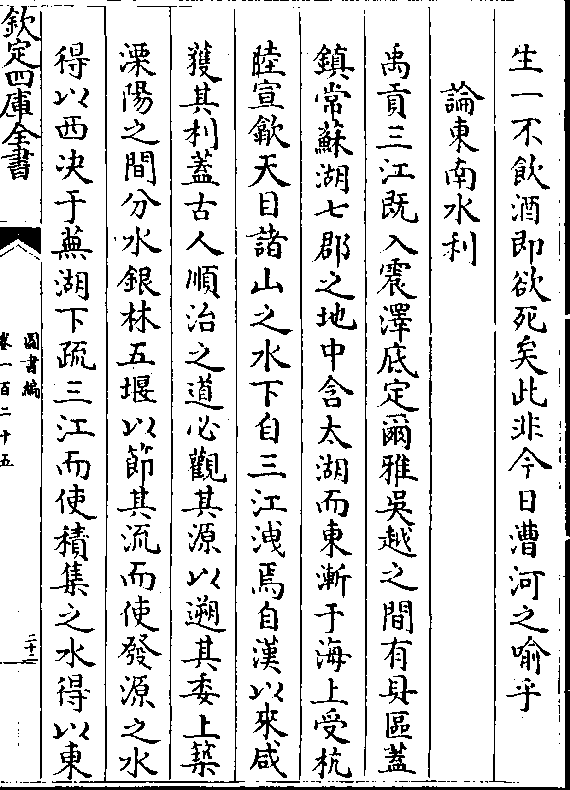 生一不飲酒即欲死矣此非今日漕河之喻乎
論東南水利
禹貢三江既入震澤底定爾雅吳越之間有具區蓋
鎮常蘇湖七郡之地中含太湖而東漸于海上受杭
睦宣歙天目諸山之水下自三江洩焉自漢以來咸
獲其利蓋古人順治之道必觀其源以遡其委上築
溧陽之間分水銀林五堰以節其流而使發源之水
得以西决于蕪湖下疏三江而使積集之水得以東
欽定四庫全書
圖書編
卷一百二十五
二十二